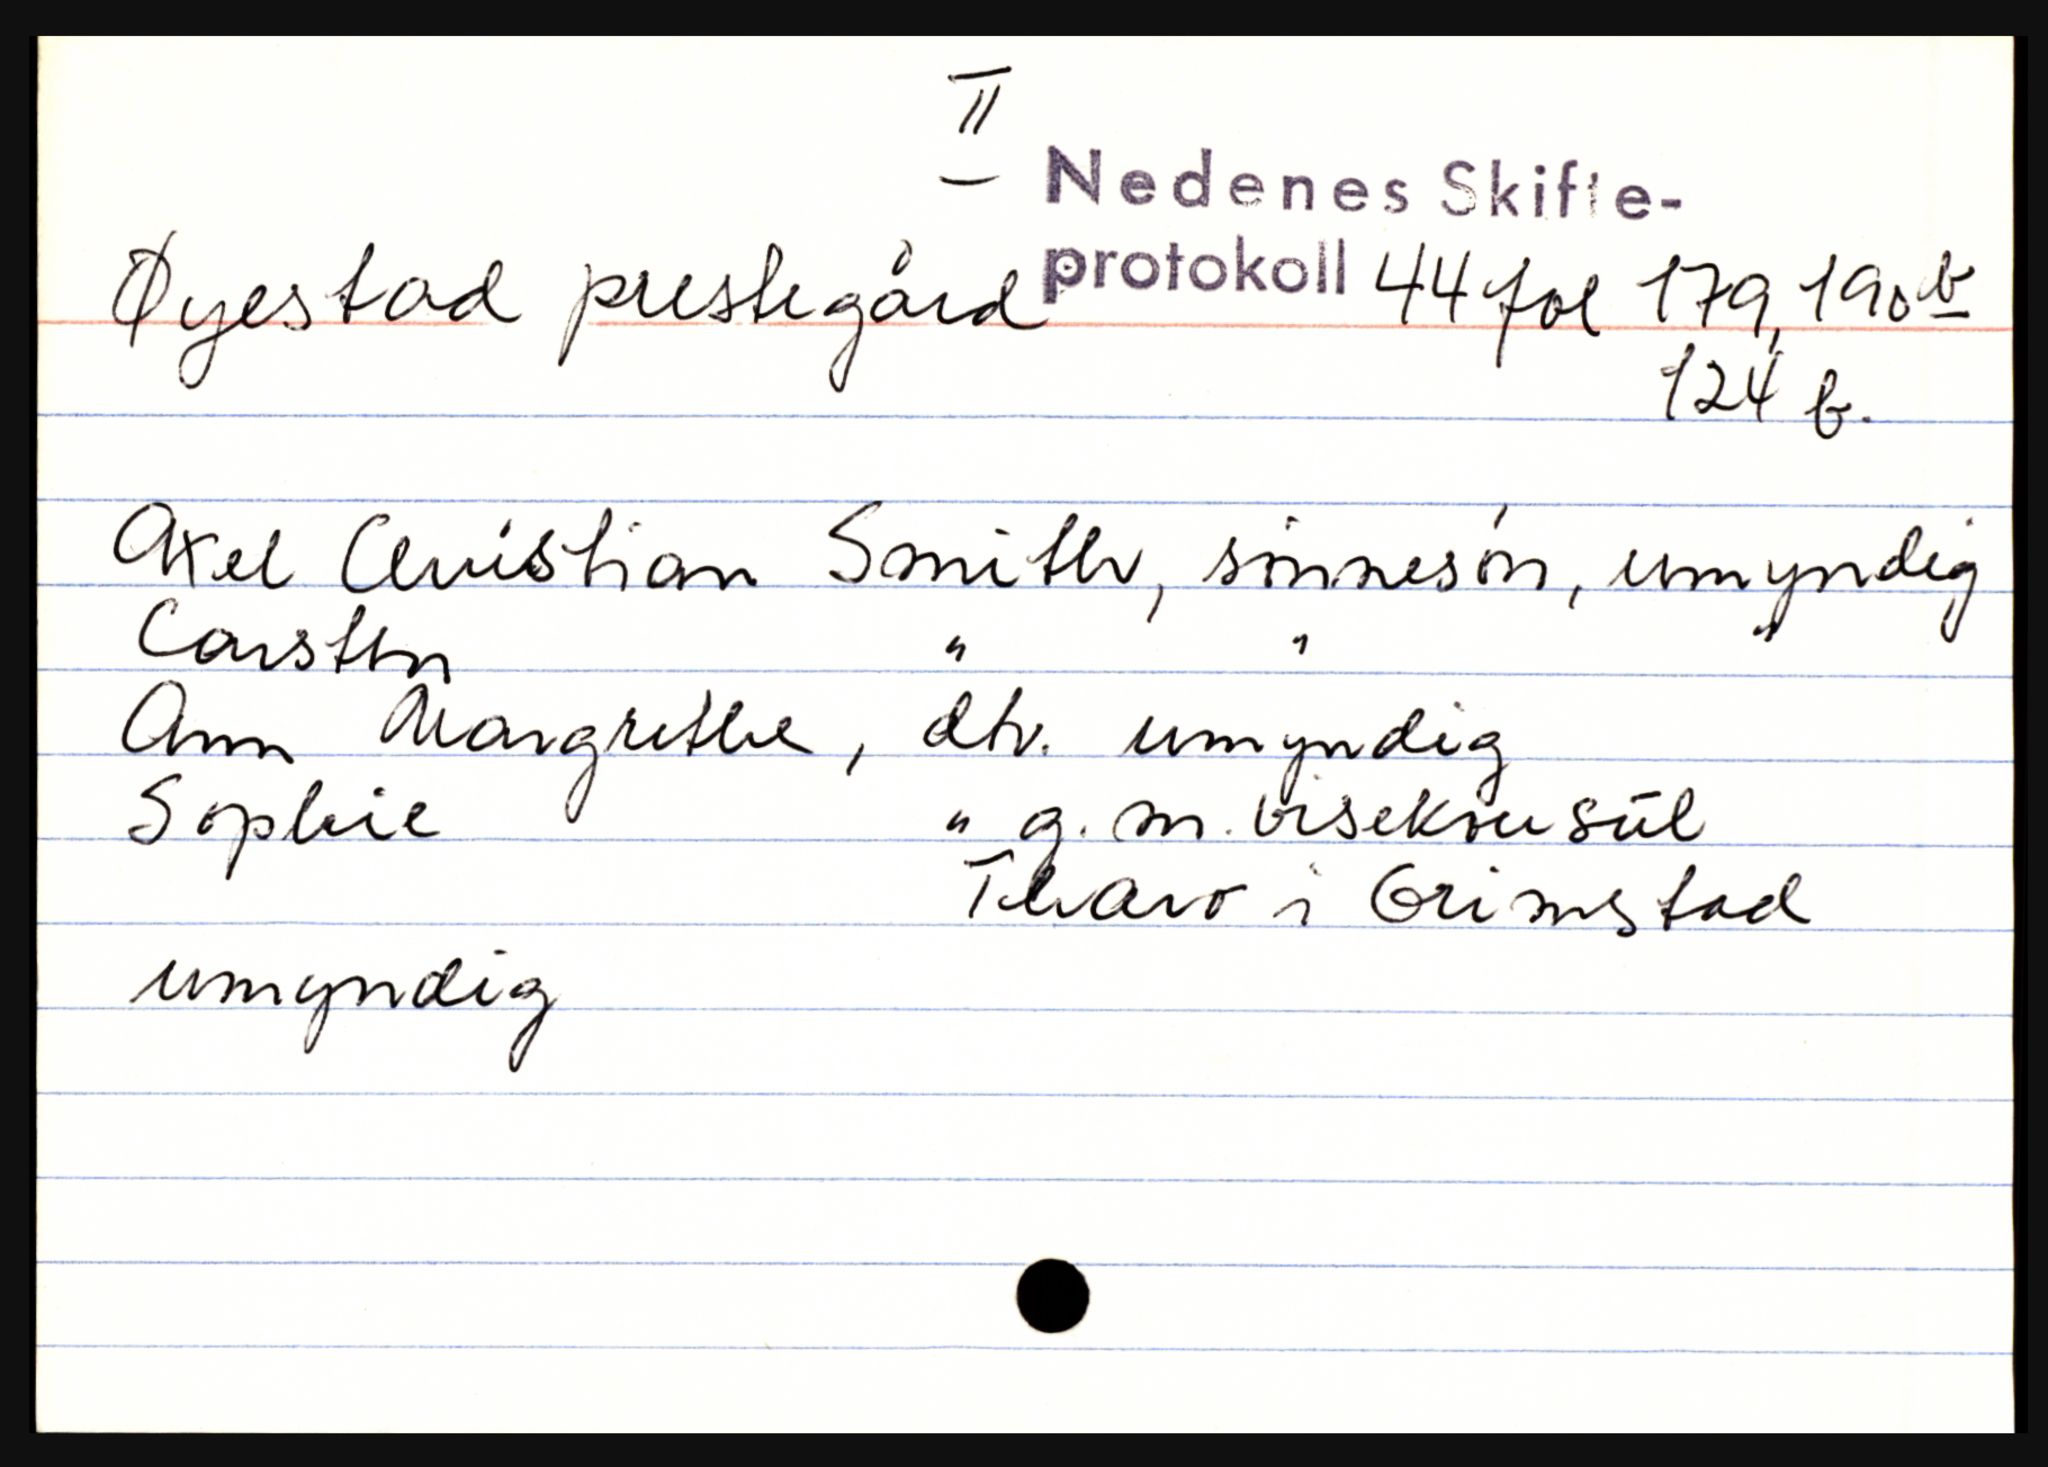 II
Nedenes Skifte-
Øyestad prestegård protokoll 44 fol 179, 190 b
124 b.
Axel Christian Smith, sønnesøn, umyndig
Carsten " " "
Ann Margrethe, dtr. umyndig
Sophie " g. m. visekonsul
i Grimstad
umyndig